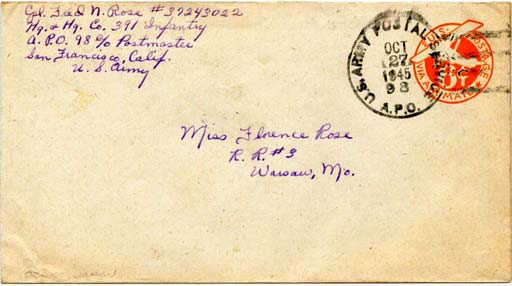 Cpl. Fred N. Rose # 37243022
Hq. & Hq. Co. 391 Infantry
A.P.O. 98 c/o Postmaster
San Francisco, Calif.
U.S. Army
U.S. ARMY POSTAL SERVICE
OCT
27
1945
98
A.P.O.
U.S. POSTAGE
6¢
VIA AIR MAIL
Miss Florence Rose
R.R. #3
Warsaw, Mo.